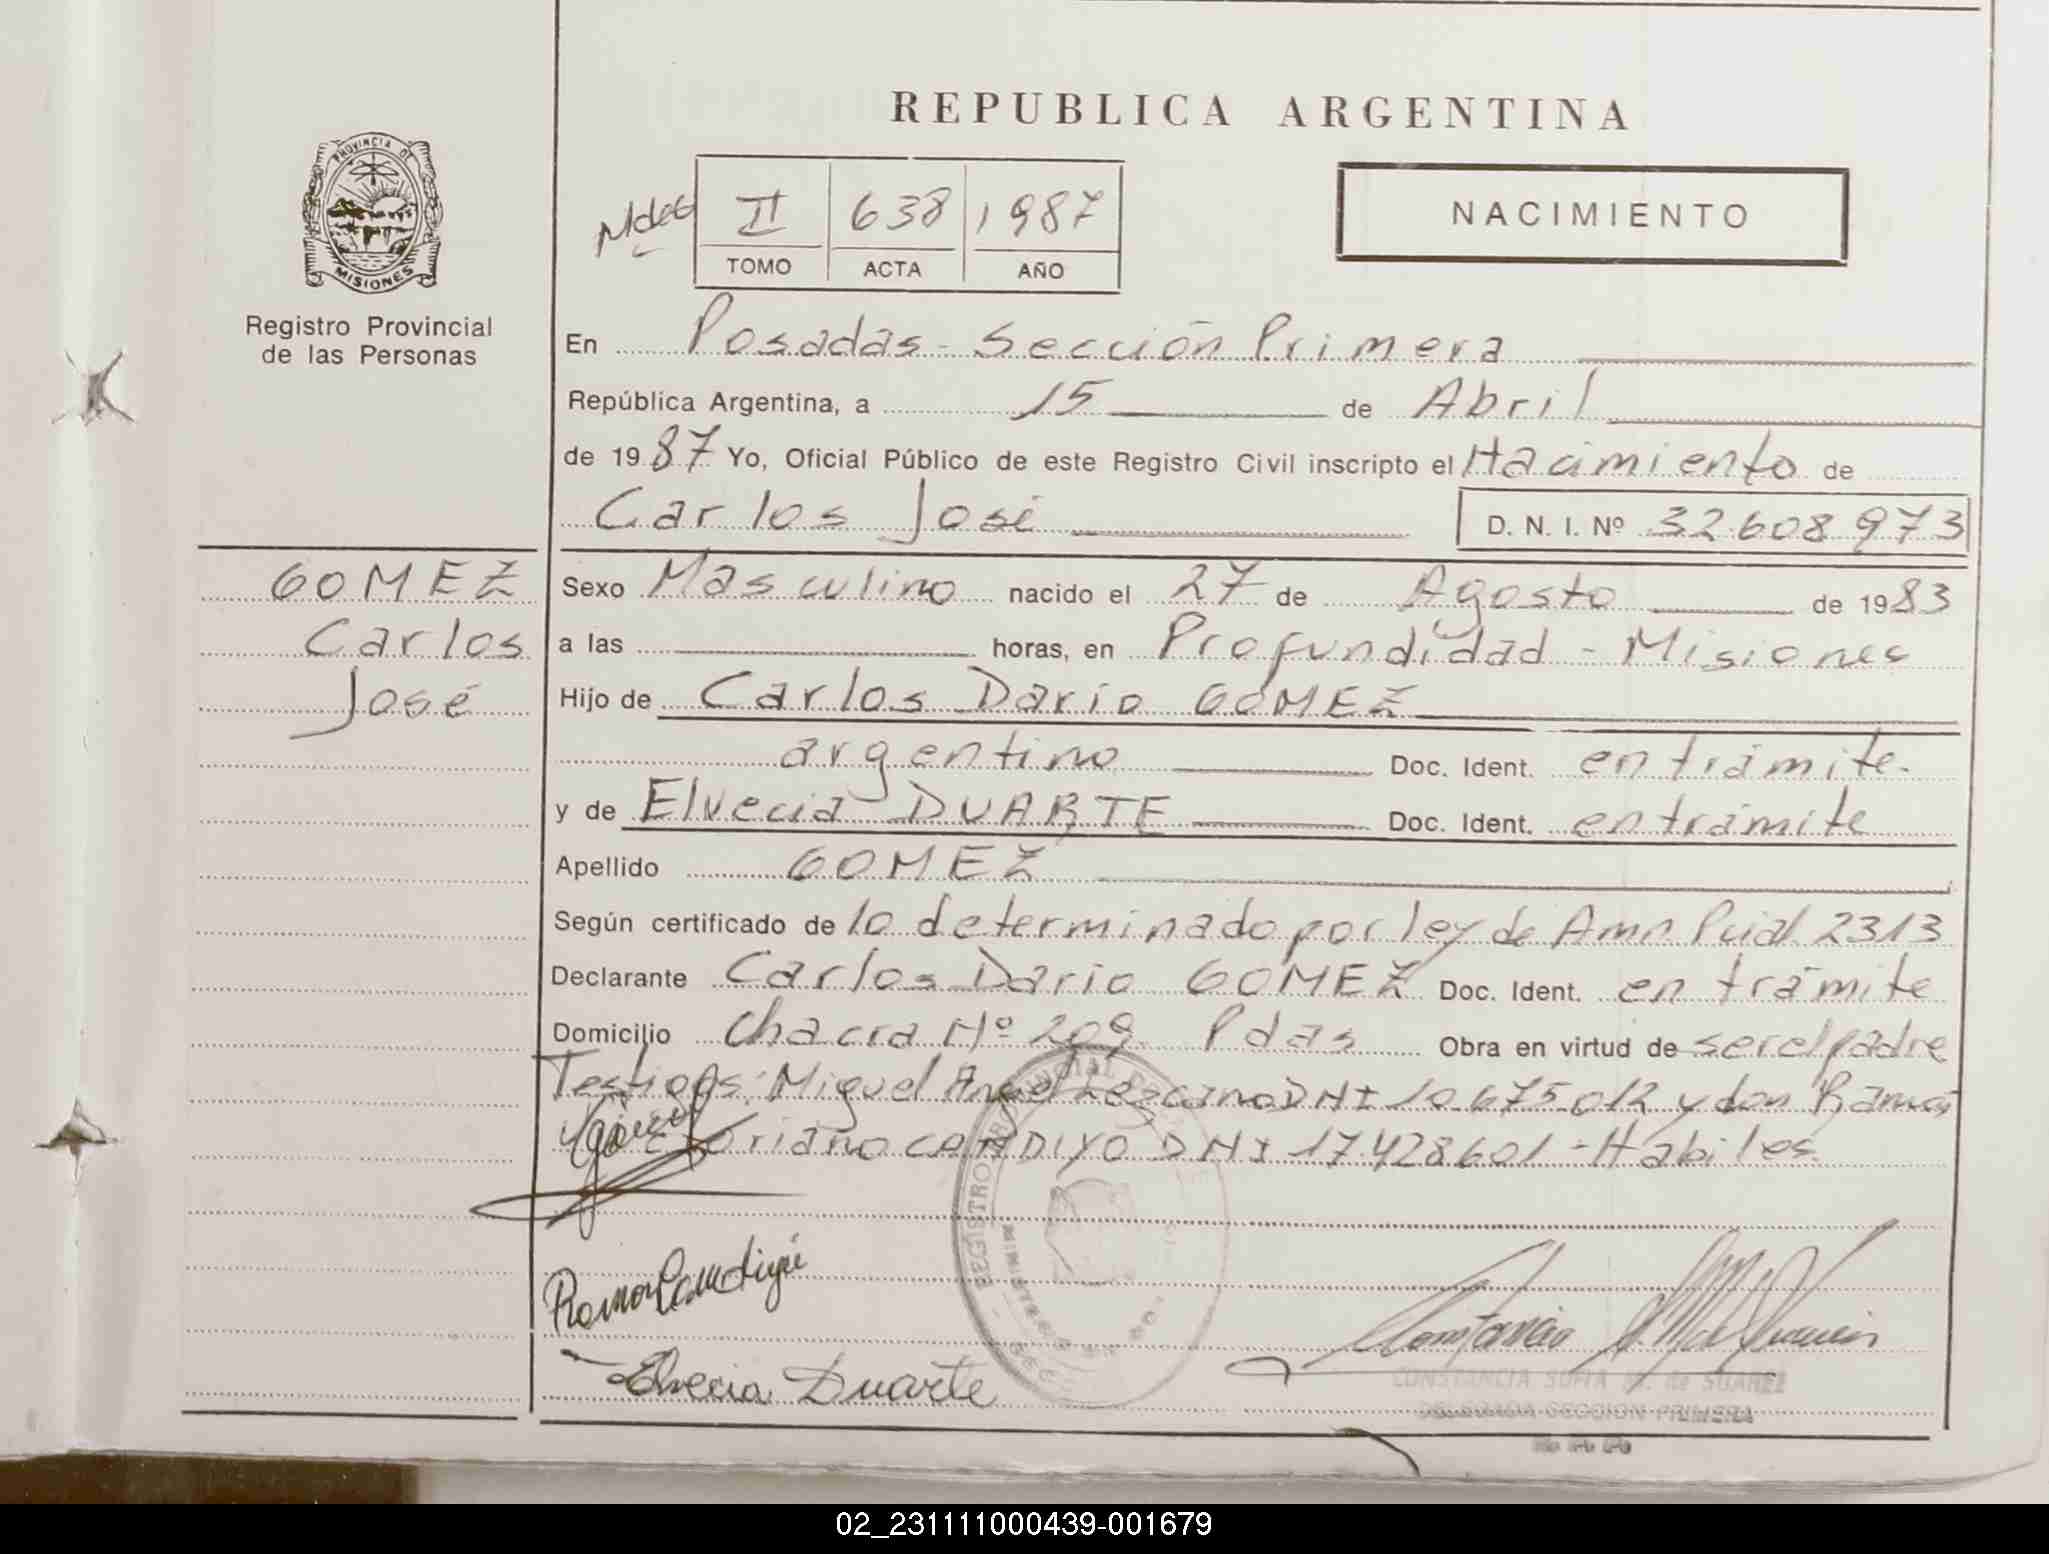 REPUBLICA ARGENTINA
PROVINCIA DE
MISIONES
Registro Provincial
de las Personas
II 638 1987
TOMO ACTA AÑO
NACIMIENTO
En Posadas - Sección Primera
República Argentina, a 15 de Abril
de 1987 Yo, Oficial Público de este Registro Civil inscripto el Nacimiento de
Carlos José D. N. I. Nº 32.608.973
GOMEZ
Carlos
José
Sexo Masculino nacido el 27 de Agosto de 1983
a las horas, en Profundidad - Misiones
Hijo de Carlos Dario GOMEZ
argentino Doc. Ident. en trámite.
y de Elvecia DUARTE Doc. Ident. en trámite
Apellido GOMEZ
Según certificado de lo determinado por ley de Amn Pcial 2313
Declarante Carlos Dario GOMEZ Doc. Ident. en trámite
Domicilio Chacra Nº 209 Pdas Obra en virtud de ser el padre
Testigos: Miguel Angel Lezcano DNI 10.675.012 y don Ramón
CANDIYO DNI 17.428.601 - Habiles.
REGISTRO PROVINCIAL DE
Ramon Candiyú
Elvecia Duarte
CONSTANCIA SOFIA M. de SUAREZ
DELEGADA SECCION PRIMERA
R. P. P.
02_231111000439-001679